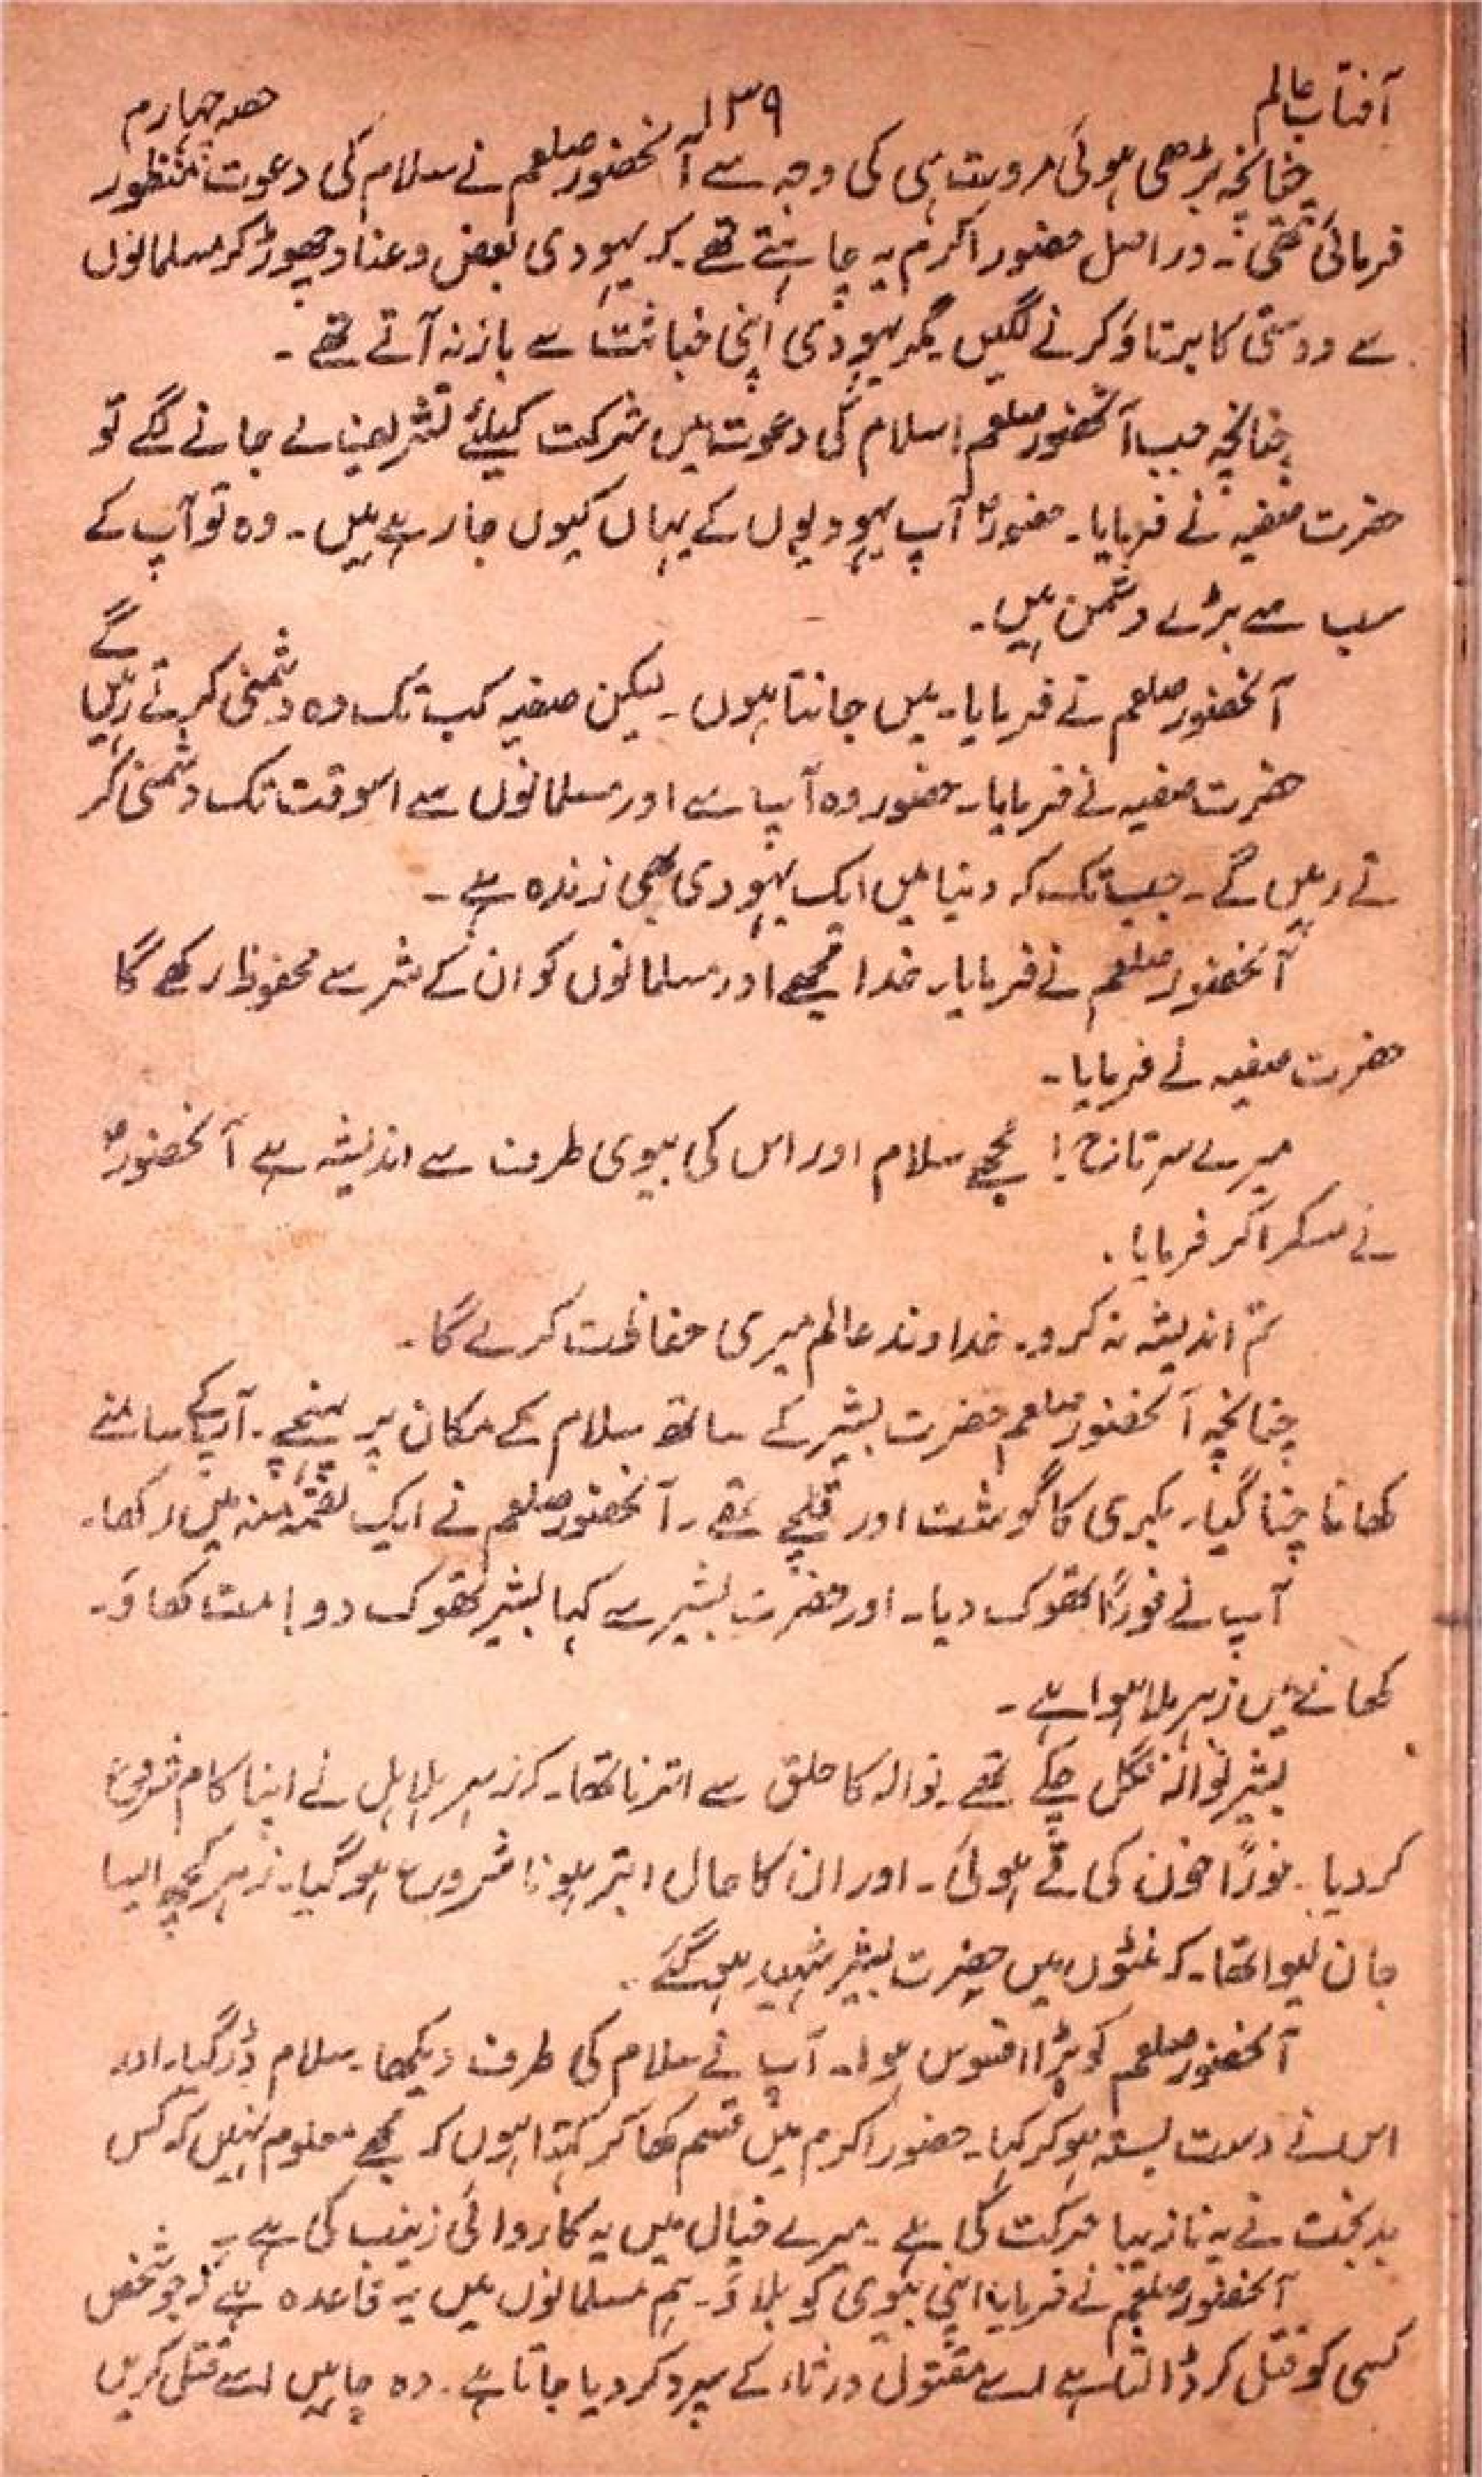 آفتاب عالم ۱۳۹ حصہ چہارم
چنانچہ بڑھی ہوئی مروت ہی کی وجہ سے آنحضور صلعم نے سلام کی دعوت منظور
فرمائی تھی۔ دراصل حضور اکرم یہ چاہتے تھے۔ کہ یہودی بغض و عناد چھوڑ کر مسلمانوں
سے دوستی کا برتاؤ کرنے لگیں۔ مگر یہودی اپنی خباثت سے باز نہ آتے تھے۔
چنانچہ جب آنحضور صلعم اسلام کی دعوت میں شرکت کیلئے تشریف لے جانے لگے تو
حضرت صفیہ نے فرمایا۔ حضورؐ آپ یہودیوں کے یہاں کیوں جا رہے ہیں۔ وہ تو آپ کے
سب سے بڑے دشمن ہیں۔
آنحضور صلعم نے فرمایا۔ میں جانتا ہوں۔ لیکن صفیہ کب تک وہ دشمنی کرتے رہیں گے
حضرت صفیہ نے فرمایا۔ حضور وہ آپ سے اور مسلمانوں سے اسوقت تک دشمنی کر
تے رہیں گے۔ جب تک کہ دنیا میں ایک یہودی بھی زندہ ہے۔
آنحضور صلعم نے فرمایا۔ خدا مجھے اور مسلمانوں کو ان کے شر سے محفوظ رکھے گا
حضرت صفیہ نے فرمایا۔
میرے سرتاج! مجھے سلام اور اس کی بیوی طرف سے اندیشہ ہے آنحضورؐ
نے مسکرا کر فرمایا۔
تم اندیشہ نہ کرو۔ خداوند عالم میری حفاظت کرے گا۔
چنانچہ آنحضور صلعم حضرت بشیر کے ساتھ سلام کے مکان پر پہنچے۔ آپ کے سامنے
کھانا چنا گیا۔ بکری کا گوشت اور قلچے تھے۔ آنحضور صلعم نے ایک لقمہ منہ میں رکھا۔
آپ نے فوراً تھوک دیا۔ اور حضرت بشیر سے کہا بشیر تھوک دو! مت کھاؤ۔
کھانے میں زہر ملا ہوا ہے۔
بشیر نوالہ نگل چکے تھے۔ نوالہ کا حلق سے اترنا تھا۔ کہ زہر ہلاہل نے اپنا کام شروع
کر دیا۔ فوراً خون کی قے ہوئی۔ اور ان کا حال ابتر ہونا شروع ہو گیا۔ زہر کچھ ایسا
جان لیوا تھا۔ کہ منٹوں میں حضرت بشیر شہید ہو گئے۔
آنحضور صلعم کو بڑا افسوس ہوا۔ آپ نے سلام کی طرف دیکھا۔ سلام ڈر گیا۔ اور
اس نے دست بستہ ہو کر کہا۔ حضور اکرم میں قسم کھا کر کہتا ہوں کہ مجھے معلوم نہیں کہ کس
بدبخت نے یہ نازیبا حرکت کی ہے۔ میرے خیال میں یہ کاروائی زینب کی ہے۔
آنحضور صلعم نے فرمایا اپنی بیوی کو بلاؤ۔ ہم مسلمانوں میں یہ قاعدہ ہے کہ جو شخص
کسی کو قتل کر ڈالتا ہے اسے مقتول ورثاء کے سپرد کر دیا جاتا ہے۔ وہ چاہیں اسے قتل کریں